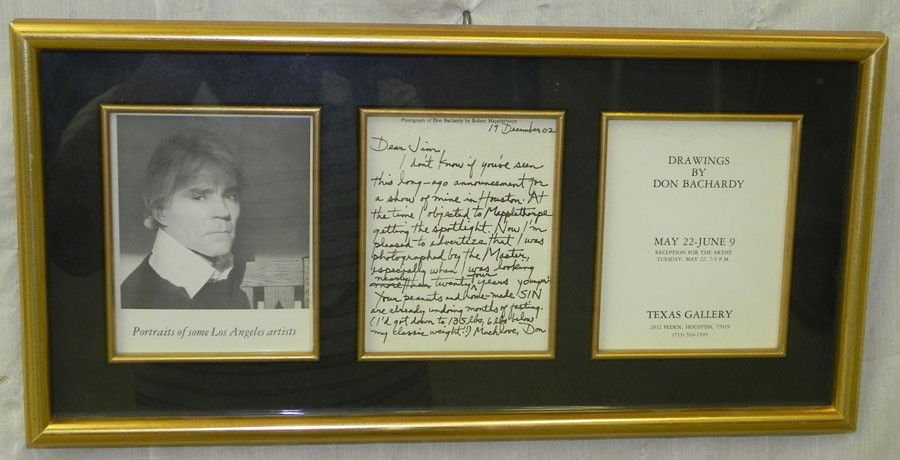 Portraits of some Los Angeles artists
Photograph of Don Bachardy by Robert Mapplethorpe
19 December 02
Dear Jim,
I don't know if you've seen
this long-ago announcement for
a show of mine in Houston. At
the time I objected to Mapplethorpe
getting the spotlight. Now I'm
pleased to advertize that I was
photographed by the Master,
especially when I was looking
nearly four
more than twenty years younger.
Your peanuts and home-made SIN
are already undoing months of fasting.
(I'd got down to 135 lbs, 6 lbs below
my classic weight!) Much love, Don
DRAWINGS
BY
DON BACHARDY
MAY 22-JUNE 9
RECEPTION FOR THE ARTIST
TUESDAY, MAY 22, 7-9 P.M.
TEXAS GALLERY
2012 PEDEN, HOUSTON, 77019
(713) 524-1593